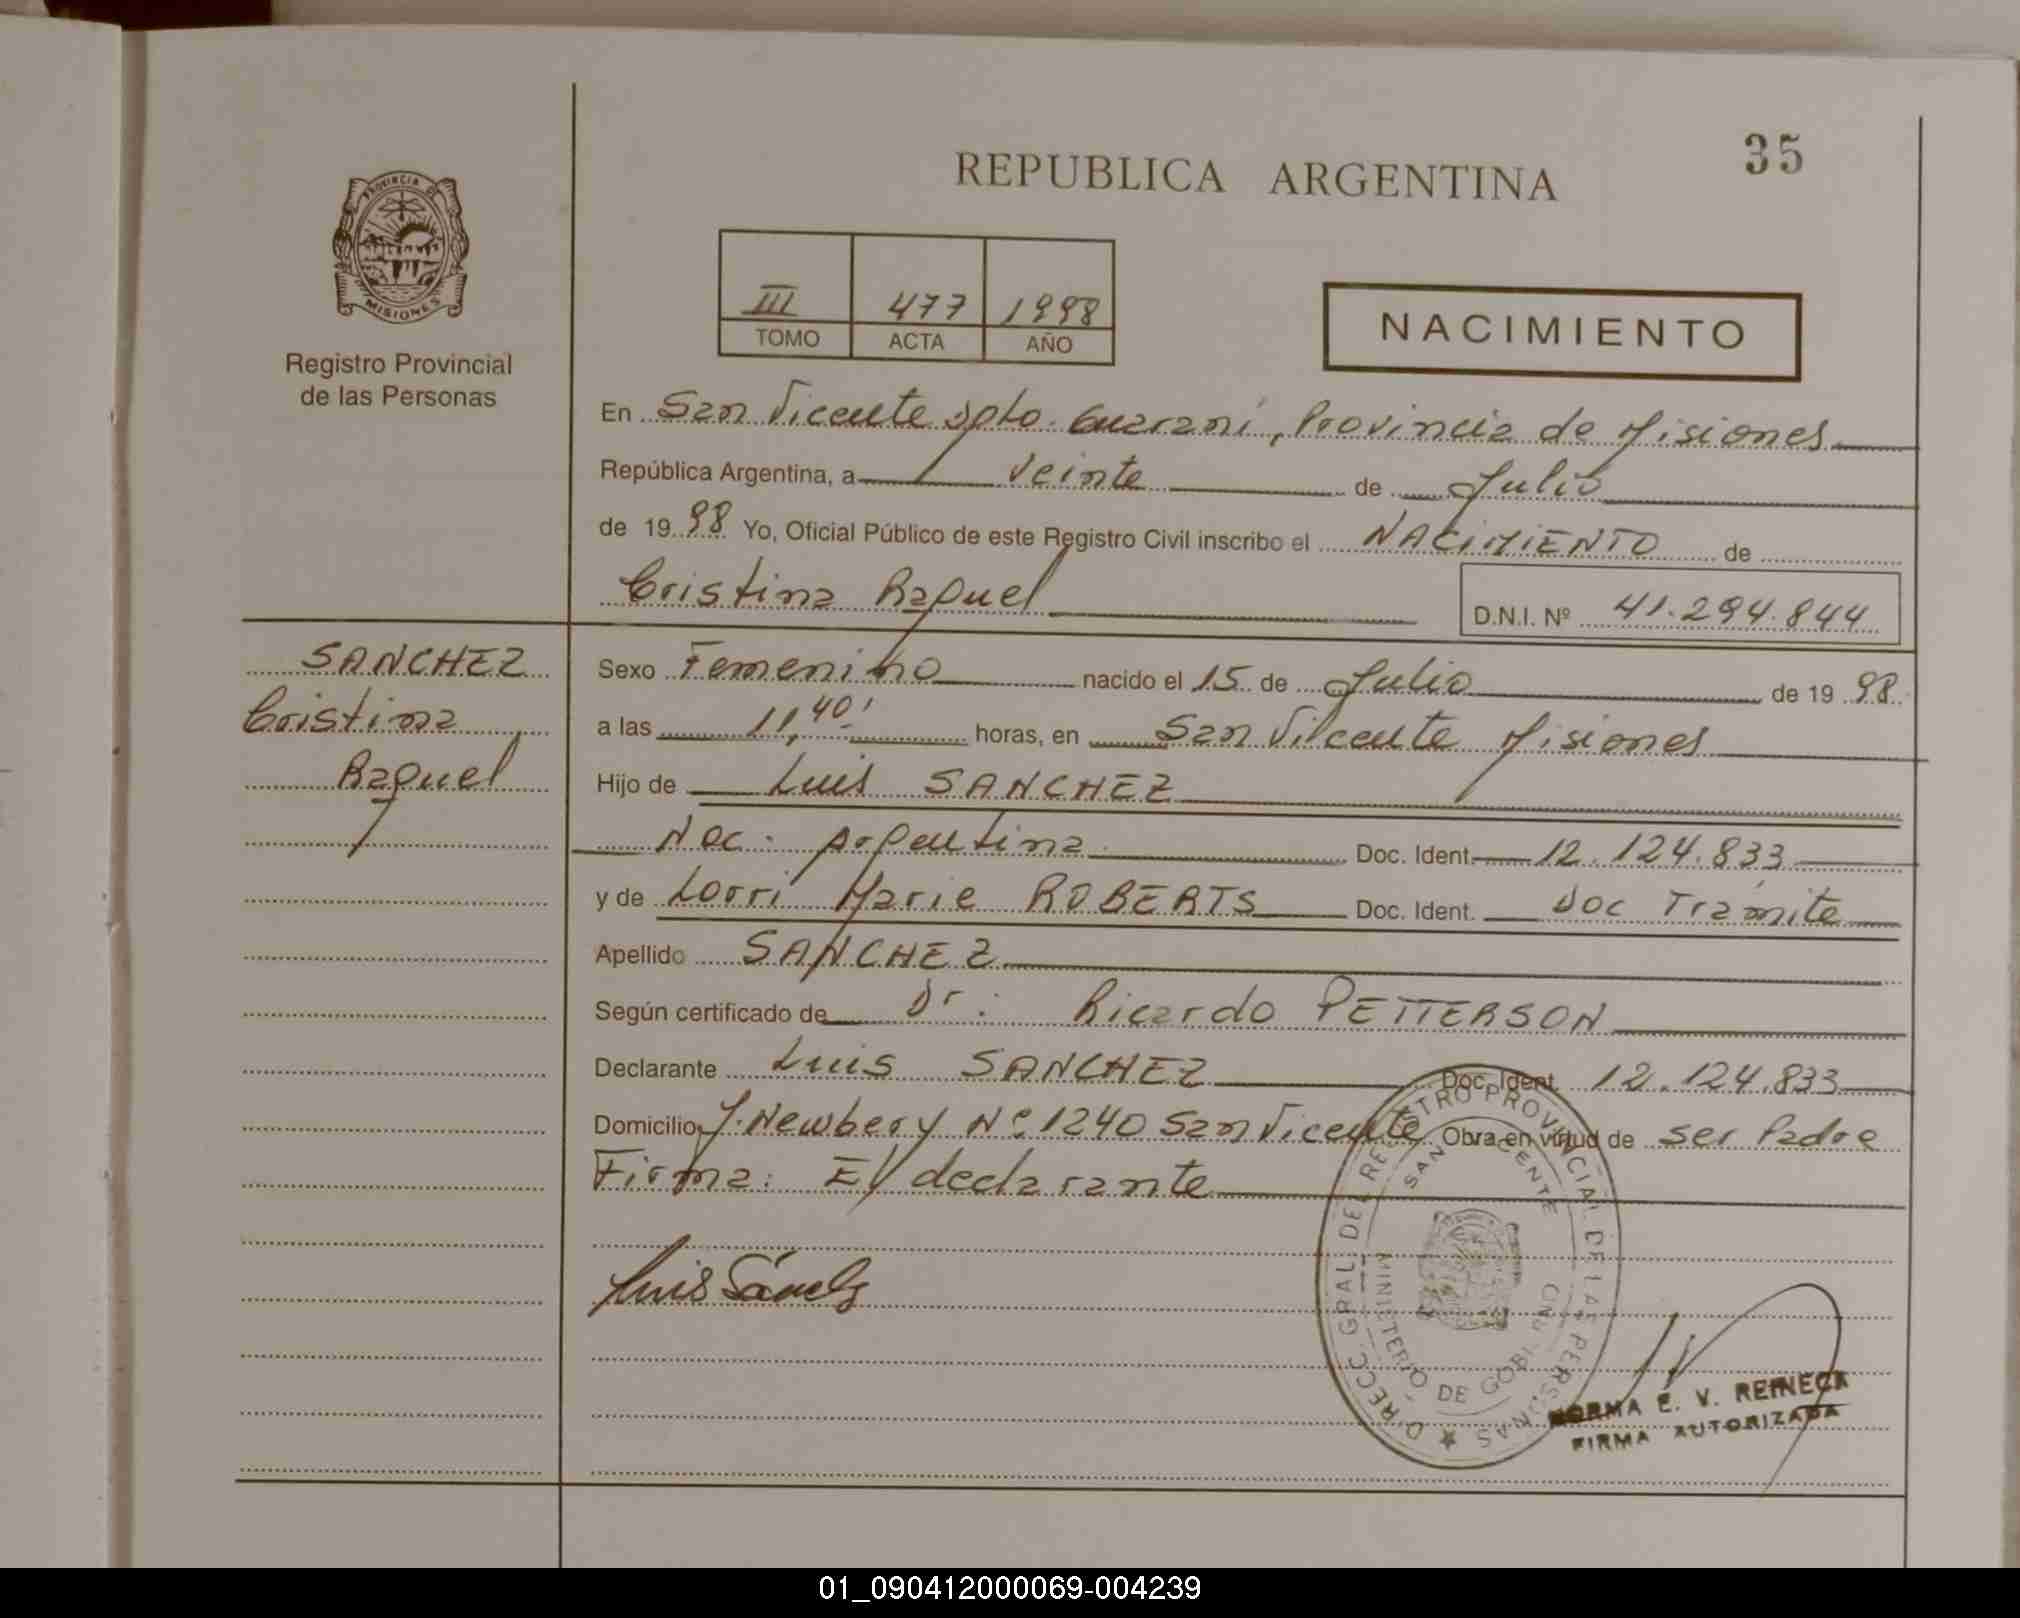 35
REPUBLICA ARGENTINA
PROVINCIA DE
MISIONES
Registro Provincial
de las Personas
III 477 1998
TOMO ACTA AÑO
NACIMIENTO
En San Vicente Dpto. Guaraní, Provincia de Misiones
República Argentina, a veinte de Julio
de 1998 Yo, Oficial Público de este Registro Civil inscribo el NACIMIENTO de
Cristina Raquel
D.N.I. Nº 41.294.844
SANCHEZ
Cristina
Raquel
Sexo Femenino nacido el 15 de Julio de 1998
a las 11,40' horas, en San Vicente Misiones
Hijo de Luis SANCHEZ
Nac. Argentina Doc. Ident. 12.124.833
y de Lorri Marie ROBERTS Doc. Ident. Doc Trámite
Apellido SANCHEZ
Según certificado de Dr: Ricardo PETTERSON
Declarante Luis SANCHEZ Doc. Ident. 12.124.833
Domicilio J. Newbery Nº 1240 San Vicente Obra en virtud de ser Padre
Firma: El declarante
Luis Sánchz
DIRECC. GRAL. DEL REGISTRO PROVINCIAL DE LAS PERSONAS
SAN VICENTE
MINISTERIO DE GOBIERNO
NORMA E. V. REINECK
FIRMA AUTORIZADA
01_090412000069-004239